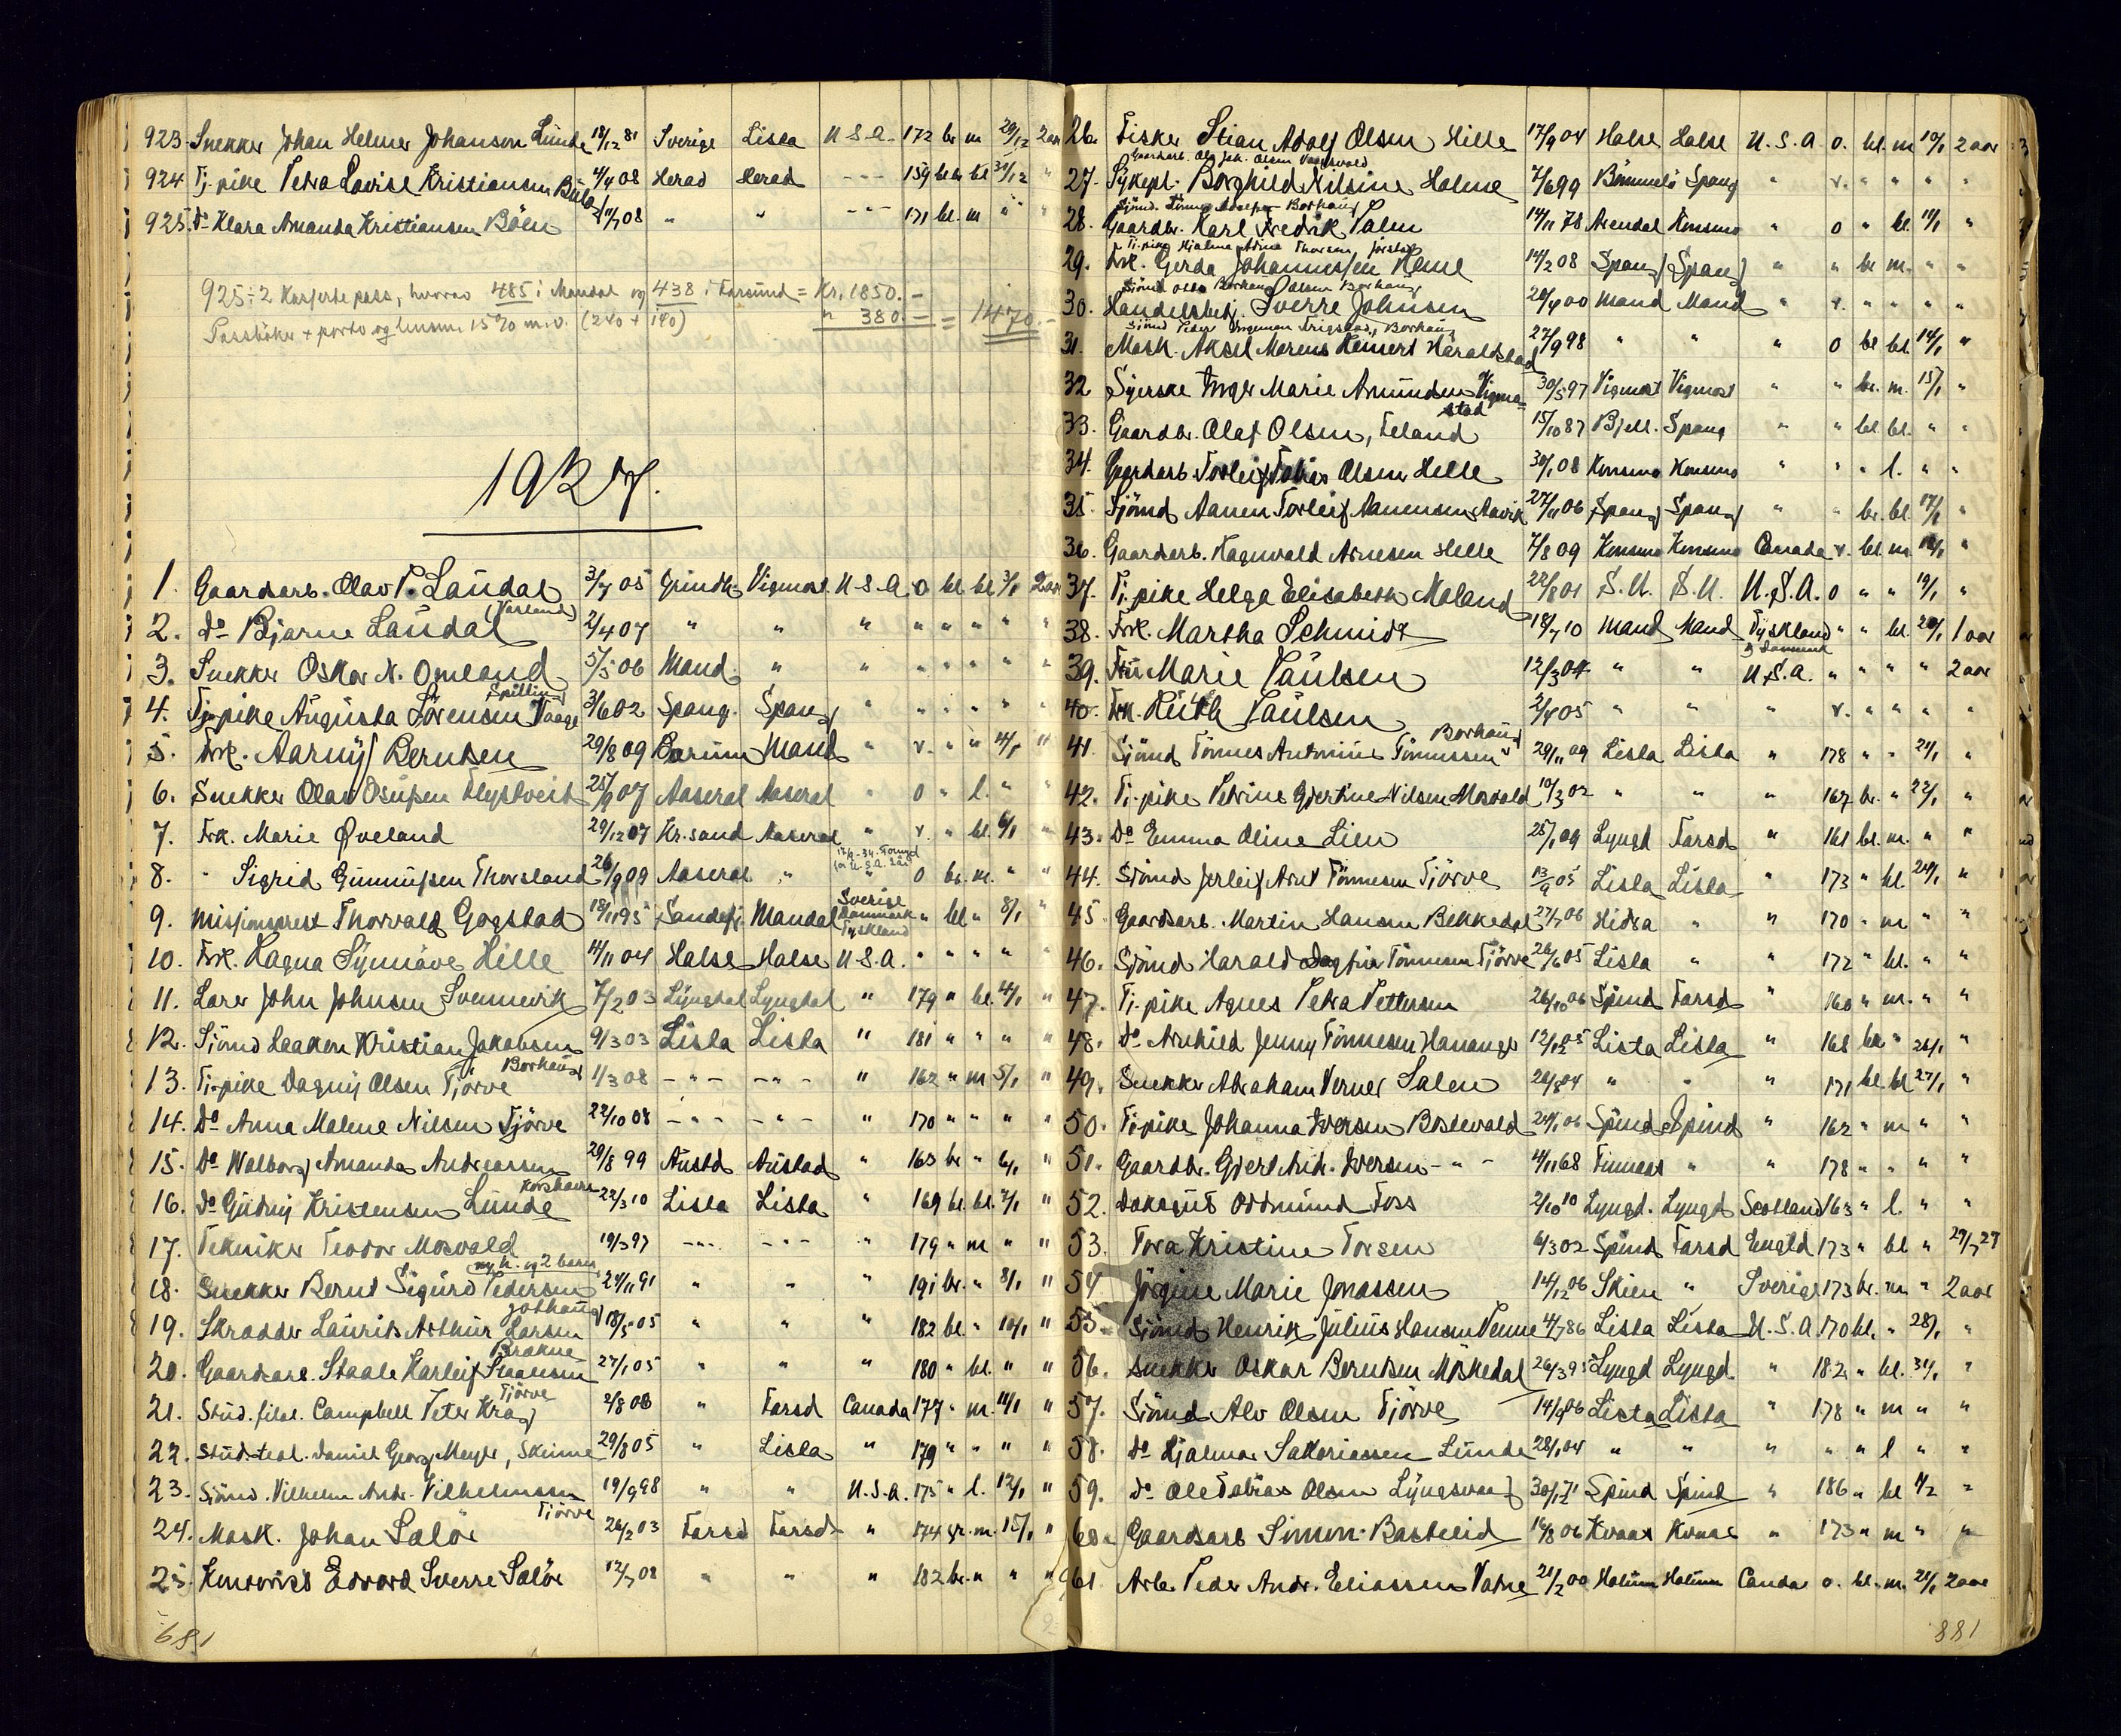 923. Snekker Johan Helmer Johanson Lunde 18/12 81 Sverige Lista U-S-A- 172 br m 29/12 2 aar
924 Tj.pike Petra Lovise Kristiansen 4/4 08 Herad Herad - - - 159 br bl 30/12 "
925. Do Klara Amanda Kristiansen Böen 08 " " - - - 171 bl. m " "
925 ÷ 2 Kasserte pass, hvorav 485 i Mandal og 438 i Farsund = Kr. 1850.-
Passböker + porto og 15% m.v. (240 + 140) " 380.- = 1470.-
1927.
1. Gaardsarb. Olav P. Laudal 3/7 05 Grindh. Vigmost. U-S-A. o bl bl 3/1 2 aar
2. Do Bjarne Laudal 2/4 07 " " " " " " " "
3. Snekker Oskar N. Omland 5/5 06 Mand. " " " " " " "
4. Tj.pike Augusta Sörensen Vaage 3/6 02 Spang. Spang " " " " " "
5. Frk. Aarny Berntsen 29/8 09 Bærum Mand " v. " " 4/1 "
6. Snekker Olav Osufsen Flystveit 25/9 07 Aaseral Aaseral " o " l. " "
7. Frk. Marie Øveland 29/12 07 Kr.sand Aaseral " v. " bl. 6/1 "
8. " Sigrid Gunnufsen Thorsland 26/9 09 Aaseral " " o br. m. " "
9. Misjonsprest Thorvald Gogstad 18/11 95 Sandefj. Mandal Sverige Danmark Tyskland " bl " 8/1 "
10. Frk. Ragna Synnöve Hille 14/11 04 Halse Halse U-S.A. " " " " "
11. Lærer John Johnsen Svennevik 7/2 03 Lyngdal Lyngdal " 179 " bl. 4/1 "
12. Sjömd Haakon Kristian Jakobsen 9/3 03 Lista Lista " 181 " " " "
Borhaug
13. Tj.pike Dagny Olsen Tjörve 1/3 08 - " - - " - " 162 " m 5/1 "
14. Do Anna Malene Nilsen Tjörve 22/10 08 - " - - " - " 170 " " " "
15. Do Walborg Amanda Andreassen 29/8 99 Austd Austad " 163 br " 6/1 "
Korshavn
16. Do Gudny Kristensen Lunde 22/3 10 Lista Lista " 169 bl. bl. 7/1 "
17. Tekniker Teodor Mosvald 19/3 97 - " - - " - " 179 " m " "
m/h. og 2 barn
18. Snekker Bernt Sigurd Pedersen 24/11 91 " " " 191 br. " 8/1 "
19. Skrædder Laurits Arthur Larsen 18/5 05 " " " 182 bl. " 10/1 "
Brekne
20. Gaardsarb. Staale Karleif Staalesen 27/1 05 " " " 180 " bl. " "
Tjörve
21. Stud. filol. Campbell Peter Krag 2/8 08 " Farsd Canada 177 " m. 11/1 "
22. Stud. teol. Daniel Georg Meyer, Skeime 29/8 05 " Lista " 179 " " " "
23. Sjömd. Vilhelm Andr. Vilhelmsen 19/9 98 " " U.S.A. 175 " l. 12/1 "
Tjörve
24. Mask. Johan Salör 26/2 03 Farsd Farsd " 174 gr. m. 15/1 "
25. Kontorist Edvard Sverre Salör 12/7 08 " " " 182 br. " " "
681
26. Fisker Stian Adolf Olsen Hille 17/9 04 Halse Halse U.S.A. o. bl. m 10/1 2 aar
27. Sykepl. Borghild Nilsine Holme 7/6 99 Bömmelö Spang " v. " " " "
28. Gaardbr. Karl Fredrik Valen 14/11 78 Arendal Konsmo " o " bl. 11/1 "
29. Frk. Gerda Johannessen Heme 14/2 08 Spang Spang " " br m. " "
30. Handelsbetj. Sverre Johnsen 20/4 00 Mand Mand " v. " " " "
31. Mask. Aksel Marens Reinert Haraldstad 27/9 98 " " " o bl bl. 14/1 "
32 Syerske Inger Marie Amundsen Vigmostad 30/5 97 Vigmost Vigmost " " br. m. 15/1 "
33. Gaardbr. Olaf Olsen, Feland 15/10 87 Bjell. Spang " " bl bl. " "
34. Gaardarb. Torleif Tobias Olsen Helle 30/1 08 Konsmo Konsmo " " " l. " "
35. Sjömd Aanen Torleif Aanensen Aavik 27/11 06 Spang Spang " " br. bl. 17/1 "
36. Gaardarb. Ragnvald Arnesen Helle 7/8 09 Konsmo Konsmo Canada v. bl. m. 18/1 "
37. Tj.pike Helga Elisabeth Moland 22/8 01 S.U. S.U. U.S.A. o " " 19/1 "
38. Frk. Martha Schmidt 18/7 10 Mand Mand Tyskland og Danmark " " bl. 20/1 1 aar
39. Fru Marie Paulsen 12/3 04 " " U.S.a. " " " " 2 aar
40. Frk. Ruth Paulsen 2/4 05 " " " v. " " " "
Borhaug
41. Sjömd Tönnes Antonius Tönnessen 29/11 09 Lista Lista " 178 " " 21/1 "
42. Tj.pike Petrine Gjertine Nilsen Mosvold 10/3 02 " " " 167 br. " 22/1 "
43. Do Emma Oline Lien 25/1 09 Lyngd Farsd " 161 bl. m. " "
44. Sjömd Jerleif Arnt Tönnesen Tjörve 13/9 05 Lista Lista " 173 " bl. 24/1 "
45 Gaardsarb. Martin Hansen Bekkedal 27/7 06 Hidra " " 170 " m " "
46. Sjömd Harald Dagfin Tönnesen Tjörve 26/6 05 Lista " " 172 " bl. " "
47. Tj.pike Agnes Petra Pettersen 26/10 06 Spind Farsd " 160 " m. " "
48. Do Arnhild Jenny Tönnesen Hananger 12/12 05 Lista Lista " 168 bl " 26/1 "
49. Snekker Abraham Verner Salen 26/8 04 " " " 171 bl. bl 27/1 "
50. Tj.pike Johanna Iversen Böslevald 24/1 06 Spind Spind " 162 " m " "
51. Gaardbr. Gjert Andr. Iversen - " - 4/11 68 Finnaas " " 178 " " " "
52. Dæksgut Oddmund Foss 2/10 10 Lyngd. Lyngd Scotland 163 " l. " "
53. Tora Kristine Torsen 6/3 02 Spind Farsd Engld 173 " bl " 27/7 27
54 Jörgine Marie Jonassen 14/12 06 Skien " Sverige 173 br. m " 2 aar
55. Sjömd Henrik Julius Hansen Penne 4/7 86 Lista Lista U.S.A. 170 bl. " 28/1 "
56. Snekker Oskar Berntsen Möskedal 26/3 95 Lyngd Lyngd. " 182 " bl. 31/1 "
57. Sjömd Alv Olsen Tjörve 14/6 06 Lista Lista " 178 " m " "
58. Do Hjalmar Sakariassen Lunde 28/1 04 " " " " " l " "
59. Do Ole Tobias Olsen Lyngsvaag Spind Spind " 186 " bl 1/2 "
60. Gaardsarb Simen Bastelid 16/8 06 Kvaas Kvaas " 173 " m " "
61 Arb. Peder Andr. Eliassen Valne 21/2 00 Holum Holum Canda o. bl. m. 21/1 2 aar
881